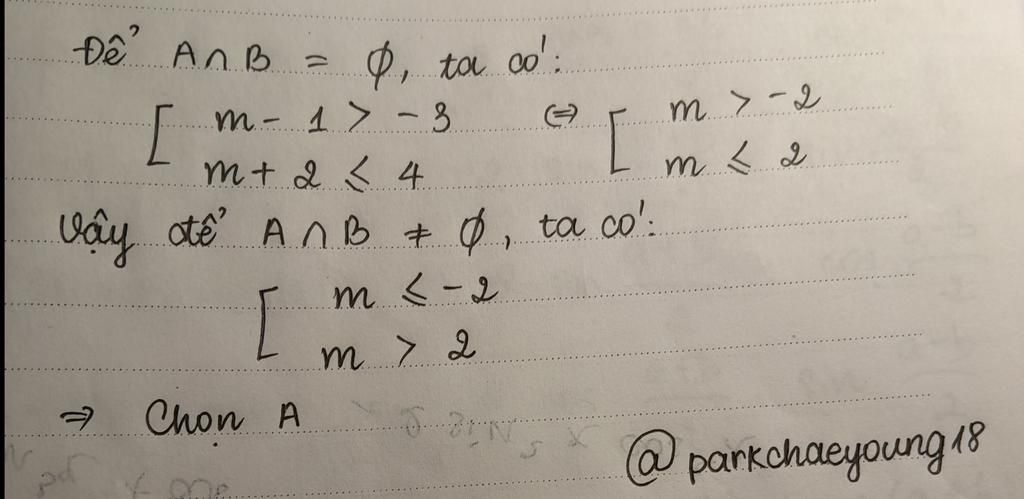 Để A ∩ B = ∅, ta có:
[ m - 1 > - 3 ⇔ [ m > -2
m + 2 ⩽ 4 m ⩽ 2
Vậy để A ∩ B ≠ ∅, ta có:
[ m ⩽ -2
m > 2
⇒ Chọn A
@parkchaeyoung18